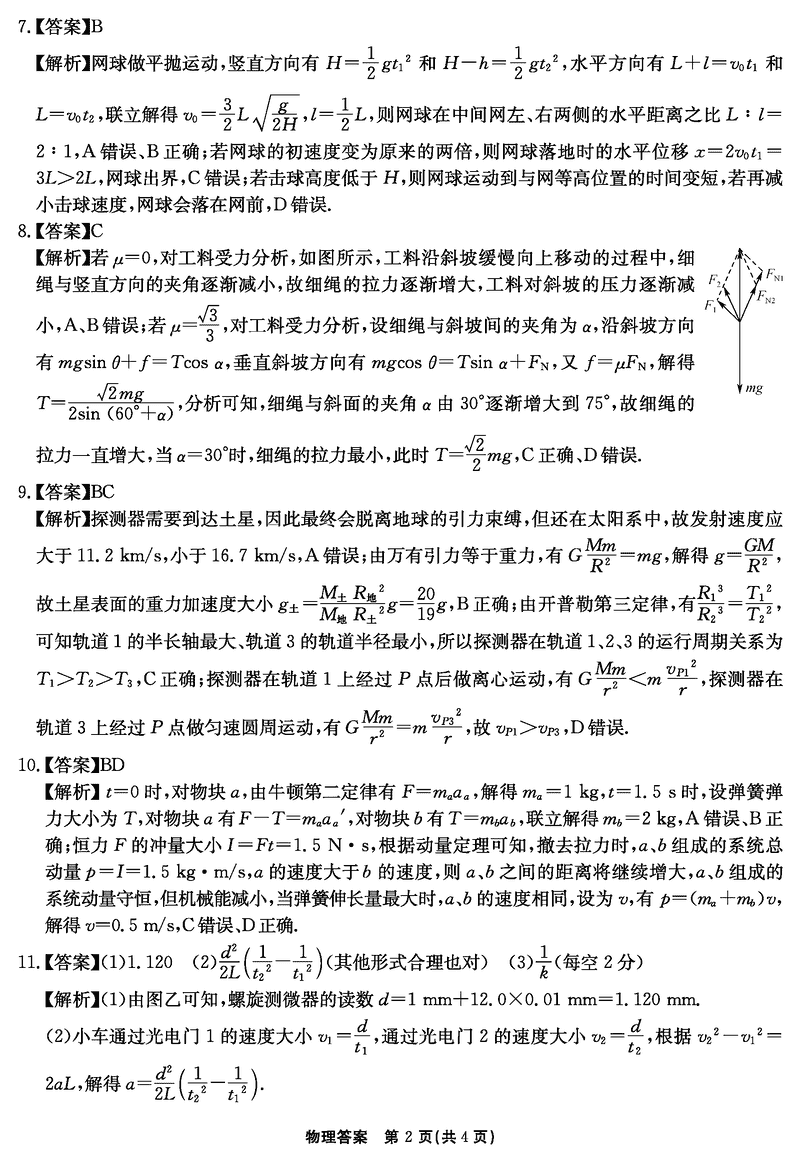 7.【答案】B
【解析】网球做平抛运动,竖直方向有 H=\frac{1}{2}gt₁² 和 H−h=\frac{1}{2}gt₂²,水平方向有 L+l=v₀t₁ 和
L=v₀t₂,联立解得 v₀=\frac{3}{2}L\sqrt{\frac{g}{2H}},l=\frac{1}{2}L,则网球在中间网左、右两侧的水平距离之比 L∶l=
2∶1,A 错误、B 正确;若网球的初速度变为原来的两倍,则网球落地时的水平位移 x=2v₀t₁=
3L>2L,网球出界,C 错误;若击球高度低于 H,则网球运动到与网等高位置的时间变短,若再减
小击球速度,网球会落在网前,D 错误.
8.【答案】C
【解析】若 μ=0,对工料受力分析,如图所示,工料沿斜坡缓慢向上移动的过程中,细
绳与竖直方向的夹角逐渐减小,故细绳的拉力逐渐增大,工料对斜坡的压力逐渐减
小,A、B 错误;若 μ=\frac{\sqrt{3}}{3},对工料受力分析,设细绳与斜坡间的夹角为 α,沿斜坡方向
有 mgsin θ+f=Tcos α,垂直斜坡方向有 mgcos θ=Tsin α+F_N,又 f=μF_N,解得
T=\frac{\sqrt{2}mg}{2sin (60°+α)},分析可知,细绳与斜面的夹角 α 由 30°逐渐增大到 75°,故细绳的
拉力一直增大,当 α=30°时,细绳的拉力最小,此时 T=\frac{\sqrt{2}}{2}mg,C 正确、D 错误.
F₂
F_{N1}
F₁
F_{N2}
mg
9.【答案】BC
【解析】探测器需要到达土星,因此最终会脱离地球的引力束缚,但还在太阳系中,故发射速度应
大于 11.2 km/s,小于 16.7 km/s,A 错误;由万有引力等于重力,有 G\frac{Mm}{R²}=mg,解得 g=\frac{GM}{R²},
故土星表面的重力加速度大小 g_土=\frac{M_土 R_地²}{M_地 R_土²}g=\frac{20}{19}g,B 正确;由开普勒第三定律,有\frac{R₁³}{R₂³}=\frac{T₁²}{T₂²},
可知轨道 1 的半长轴最大、轨道 3 的轨道半径最小,所以探测器在轨道 1、2、3 的运行周期关系为
T₁>T₂>T₃,C 正确;探测器在轨道 1 上经过 P 点后做离心运动,有 G\frac{Mm}{r²}<m\frac{v_{P1}²}{r},探测器在
轨道 3 上经过 P 点做匀速圆周运动,有 G\frac{Mm}{r²}=m\frac{v_{P3}²}{r},故 v_{P1}>v_{P3},D 错误.
10.【答案】BD
【解析】t=0 时,对物块 a,由牛顿第二定律有 F=mₐaₐ,解得 mₐ=1 kg,t=1.5 s 时,设弹簧弹
力大小为 T,对物块 a 有 F−T=mₐaₐ′,对物块 b 有 T=m_b a_b,联立解得 m_b=2 kg,A 错误、B 正
确;恒力 F 的冲量大小 I=Ft=1.5 N·s,根据动量定理可知,撤去拉力时,a、b 组成的系统总
动量 p=I=1.5 kg·m/s,a 的速度大于 b 的速度,则 a、b 之间的距离将继续增大,a、b 组成的
系统动量守恒,但机械能减小,当弹簧伸长量最大时,a、b 的速度相同,设为 v,有 p=(mₐ+m_b)v,
解得 v=0.5 m/s,C 错误、D 正确.
11.【答案】(1)1.120 (2)\frac{d²}{2L}(\frac{1}{t₂²}−\frac{1}{t₁²})(其他形式合理也对) (3)\frac{1}{k}(每空 2 分)
【解析】(1)由图乙可知,螺旋测微器的读数 d=1 mm+12.0×0.01 mm=1.120 mm.
(2)小车通过光电门 1 的速度大小 v₁=\frac{d}{t₁},通过光电门 2 的速度大小 v₂=\frac{d}{t₂},根据 v₂²−v₁²=
2aL,解得 a=\frac{d²}{2L}(\frac{1}{t₂²}−\frac{1}{t₁²}).
物理答案 第 2 页(共 4 页)